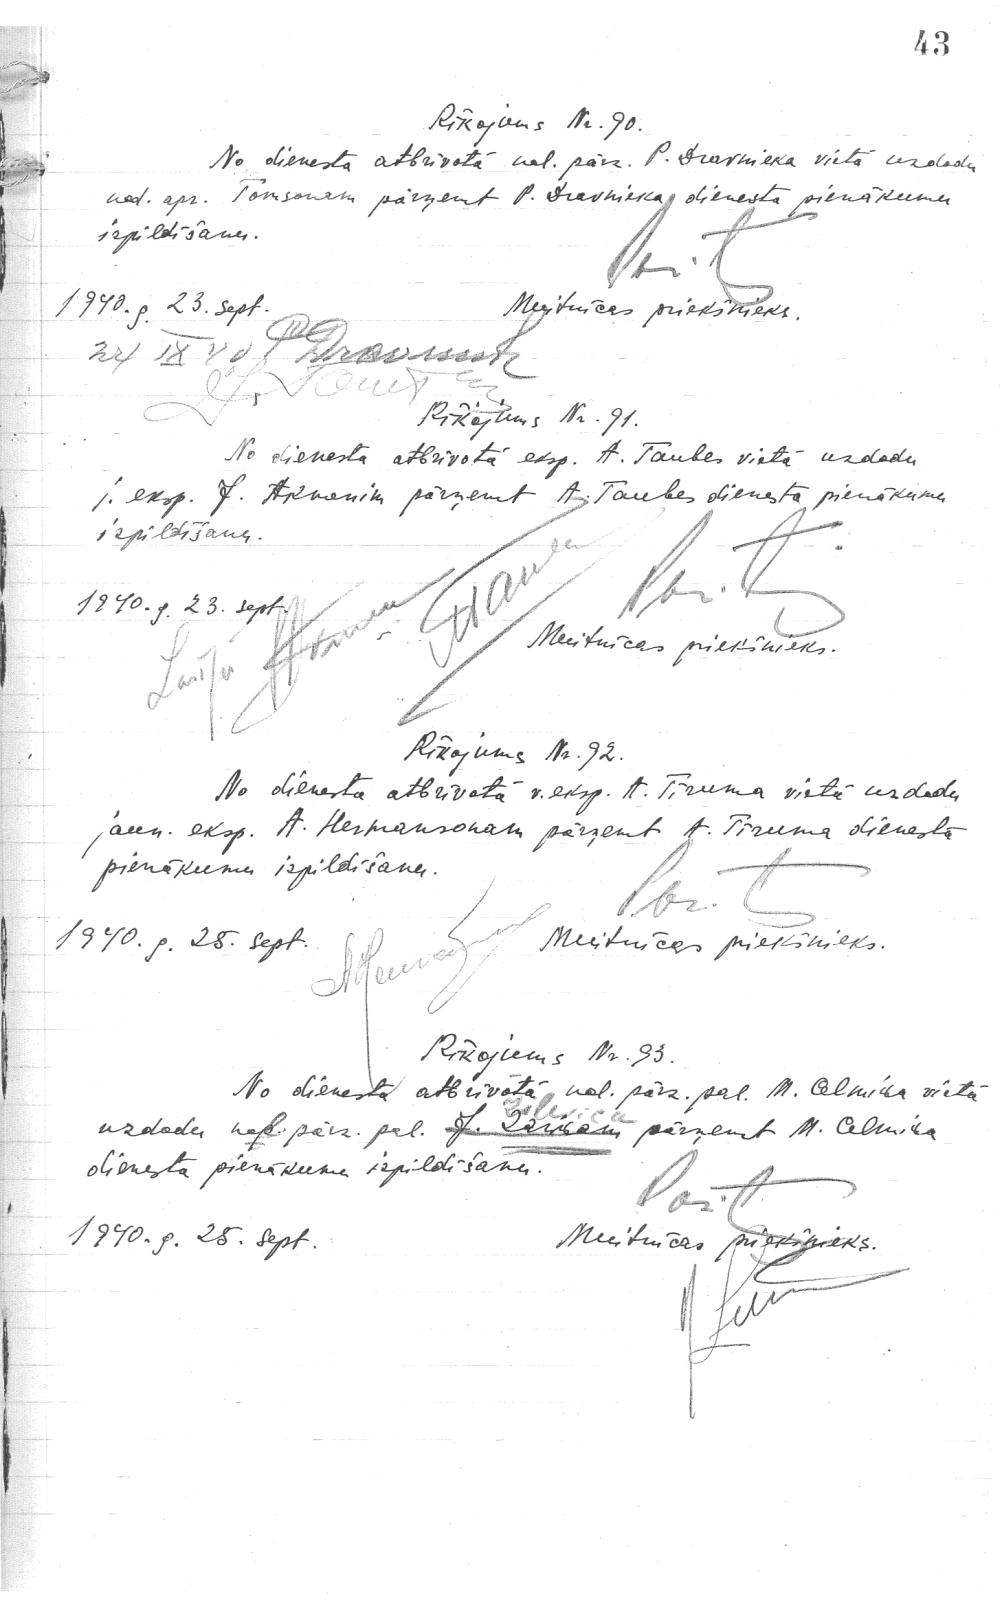 43
Rīkojums Nr. 90.
No dienesta atbrīvotā nol. pārz. P. Dravnieka vietā uzdodu
nod. apr. Tomsonam pārņemt P. Dravnieka dienesta pienākumu
izpildīšanu.
1940. g. 23. sept.
Muitnīcas priekšnieks.
24 IX 40 P Dravnieks
Rīkojums Nr. 91.
No dienesta atbrīvotā eksp. A. Taubes vietā uzdodu
j. eksp. J. Akmenim pārņemt A. Taubes dienesta pienākumu
izpildīšanu.
1940. g. 23. sept.
Lasīju
Muitnīcas priekšnieks.
Rīkojums Nr. 92.
No dienesta atbrīvotā v. eksp. A. Tīruma vietā uzdodu
jaun. eksp. A. Hermansonam pārņemt A. Tīruma dienesta
pienākumu izpildīšanu.
1940. g. 25. sept.
Muitnīcas priekšnieks.
Rīkojums Nr. 93.
No dienesta atbrīvotā nol. pārz. pal. M. Celmiņa vietā
uzdodu nol. pārz. pal. J. pārņemt M. Celmiņa
dienesta pienākumu izpildīšanu.
1940. g. 25. sept.
Muitnīcas priekšnieks.